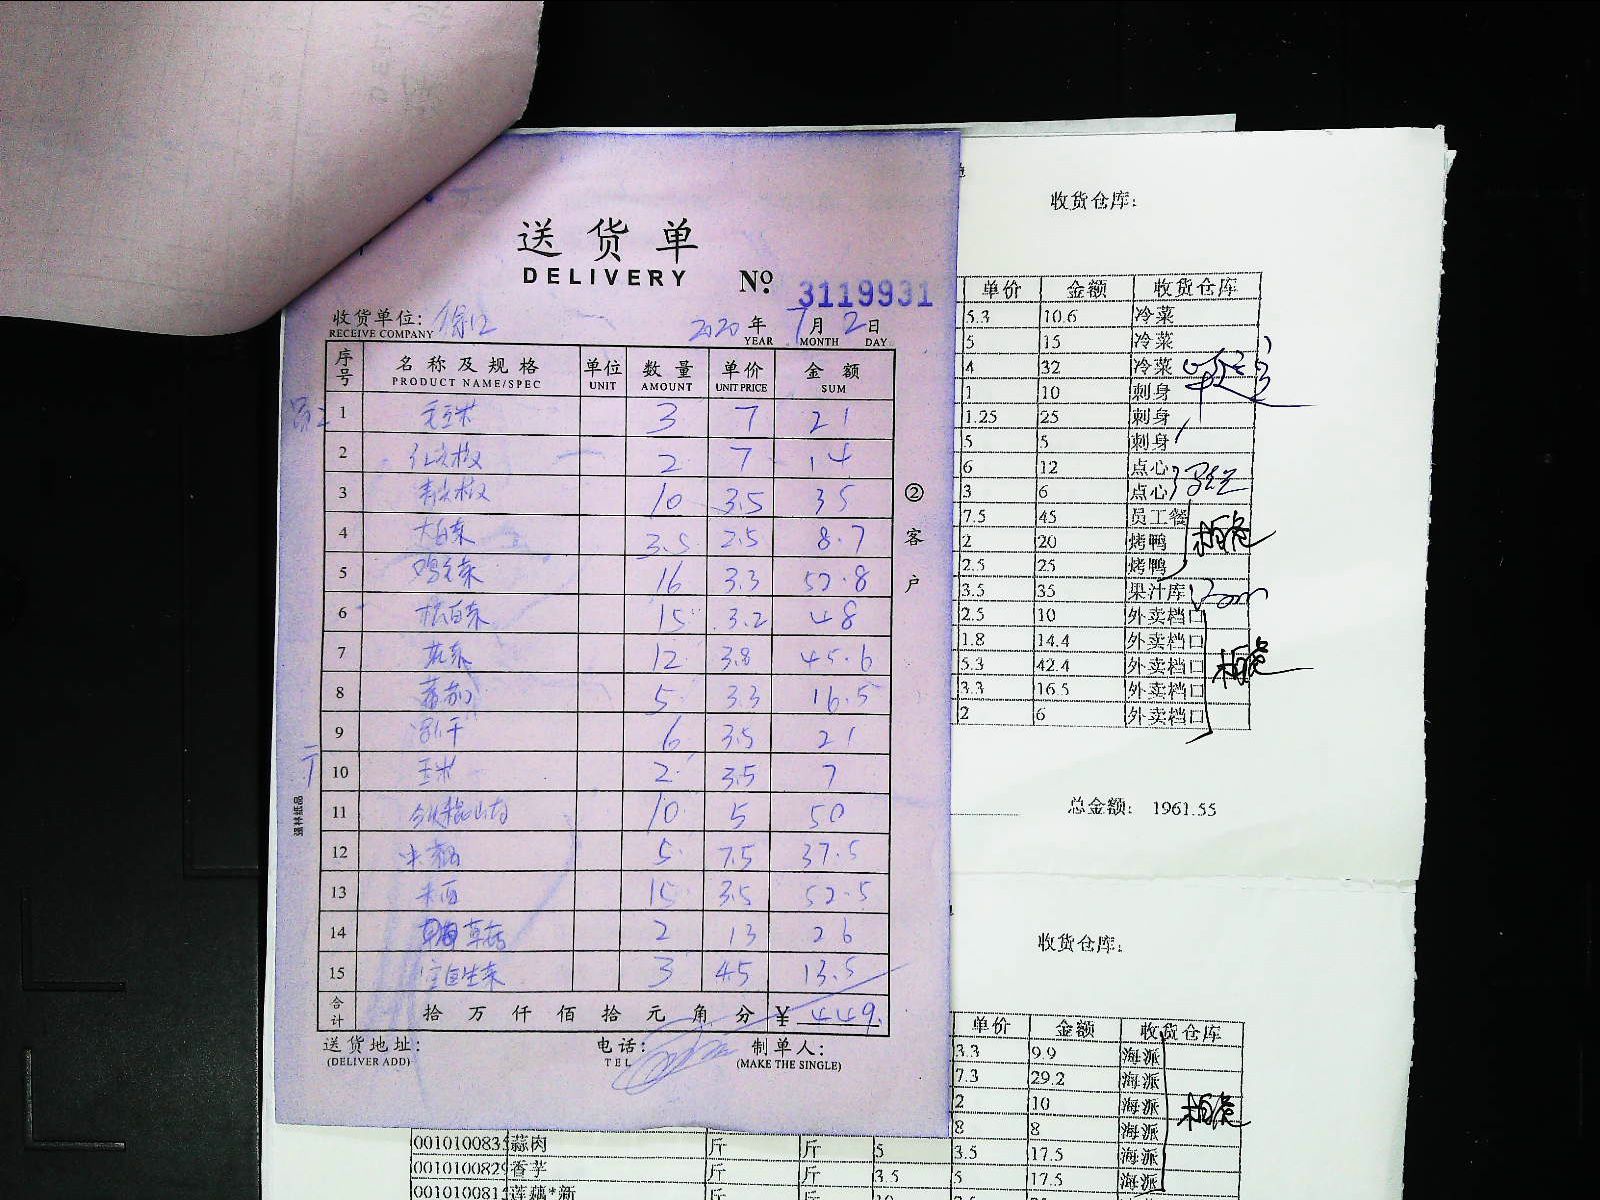 送货单
DELIVERY
№ 3119931
收货单位: 徐汇
RECEIVE COMPANY
2020 年 7 月 2 日
YEAR MONTH DAY
序号 名称及规格 单位 数量 单价 金额
PRODUCT NAME/SPEC UNIT AMOUNT UNIT PRICE SUM
1 毛豆米 3 7 21
2 红尖椒 2 7 14
3 青尖椒 10 3.5 35
4 大白菜 3.5 2.5 8.7
5 鸡毛菜 16 3.3 52.8
6 杭白菜 15 3.2 48
7 12 3.8 45.6
8 5 3.3 16.5
9 6 3.5 21
10 玉米 2 3.5 7
11 10 5 50
12 5 7.5 37.5
13 米西 15 3.5 52.5
14 草菇 2 13 26
15 生菜 3 4.5 13.5
合计 拾 万 仟 佰 拾 元 角 分 ¥ 449.
送货地址: 电话: 制单人:
(DELIVER ADD) TEL (MAKE THE SINGLE)
②客户
强林纸品
收货仓库:
单价 金额 收货仓库
5.3 10.6 冷菜
5 15 冷菜
4 32 冷菜
1 10 刺身
1.25 25 刺身
5 5 刺身
6 12 点心
3 6 点心
7.5 45 员工餐
2 20 烤鸭
2.5 25 烤鸭
3.5 35 果汁库
2.5 10 外卖档口
1.8 14.4 外卖档口
5.3 42.4 外卖档口
3.3 16.5 外卖档口
2 6 外卖档口
总金额: 1961.55
收货仓库:
单价 金额 收货仓库
3.3 9.9 海派
7.3 29.2 海派
2 10 海派
8 8 海派
001010083 蒜肉 斤 斤 5 3.5 17.5 海派
0010100829 香芋 斤 斤 3.5 5 17.5 海派
001010081 莲藕*新 斤 斤